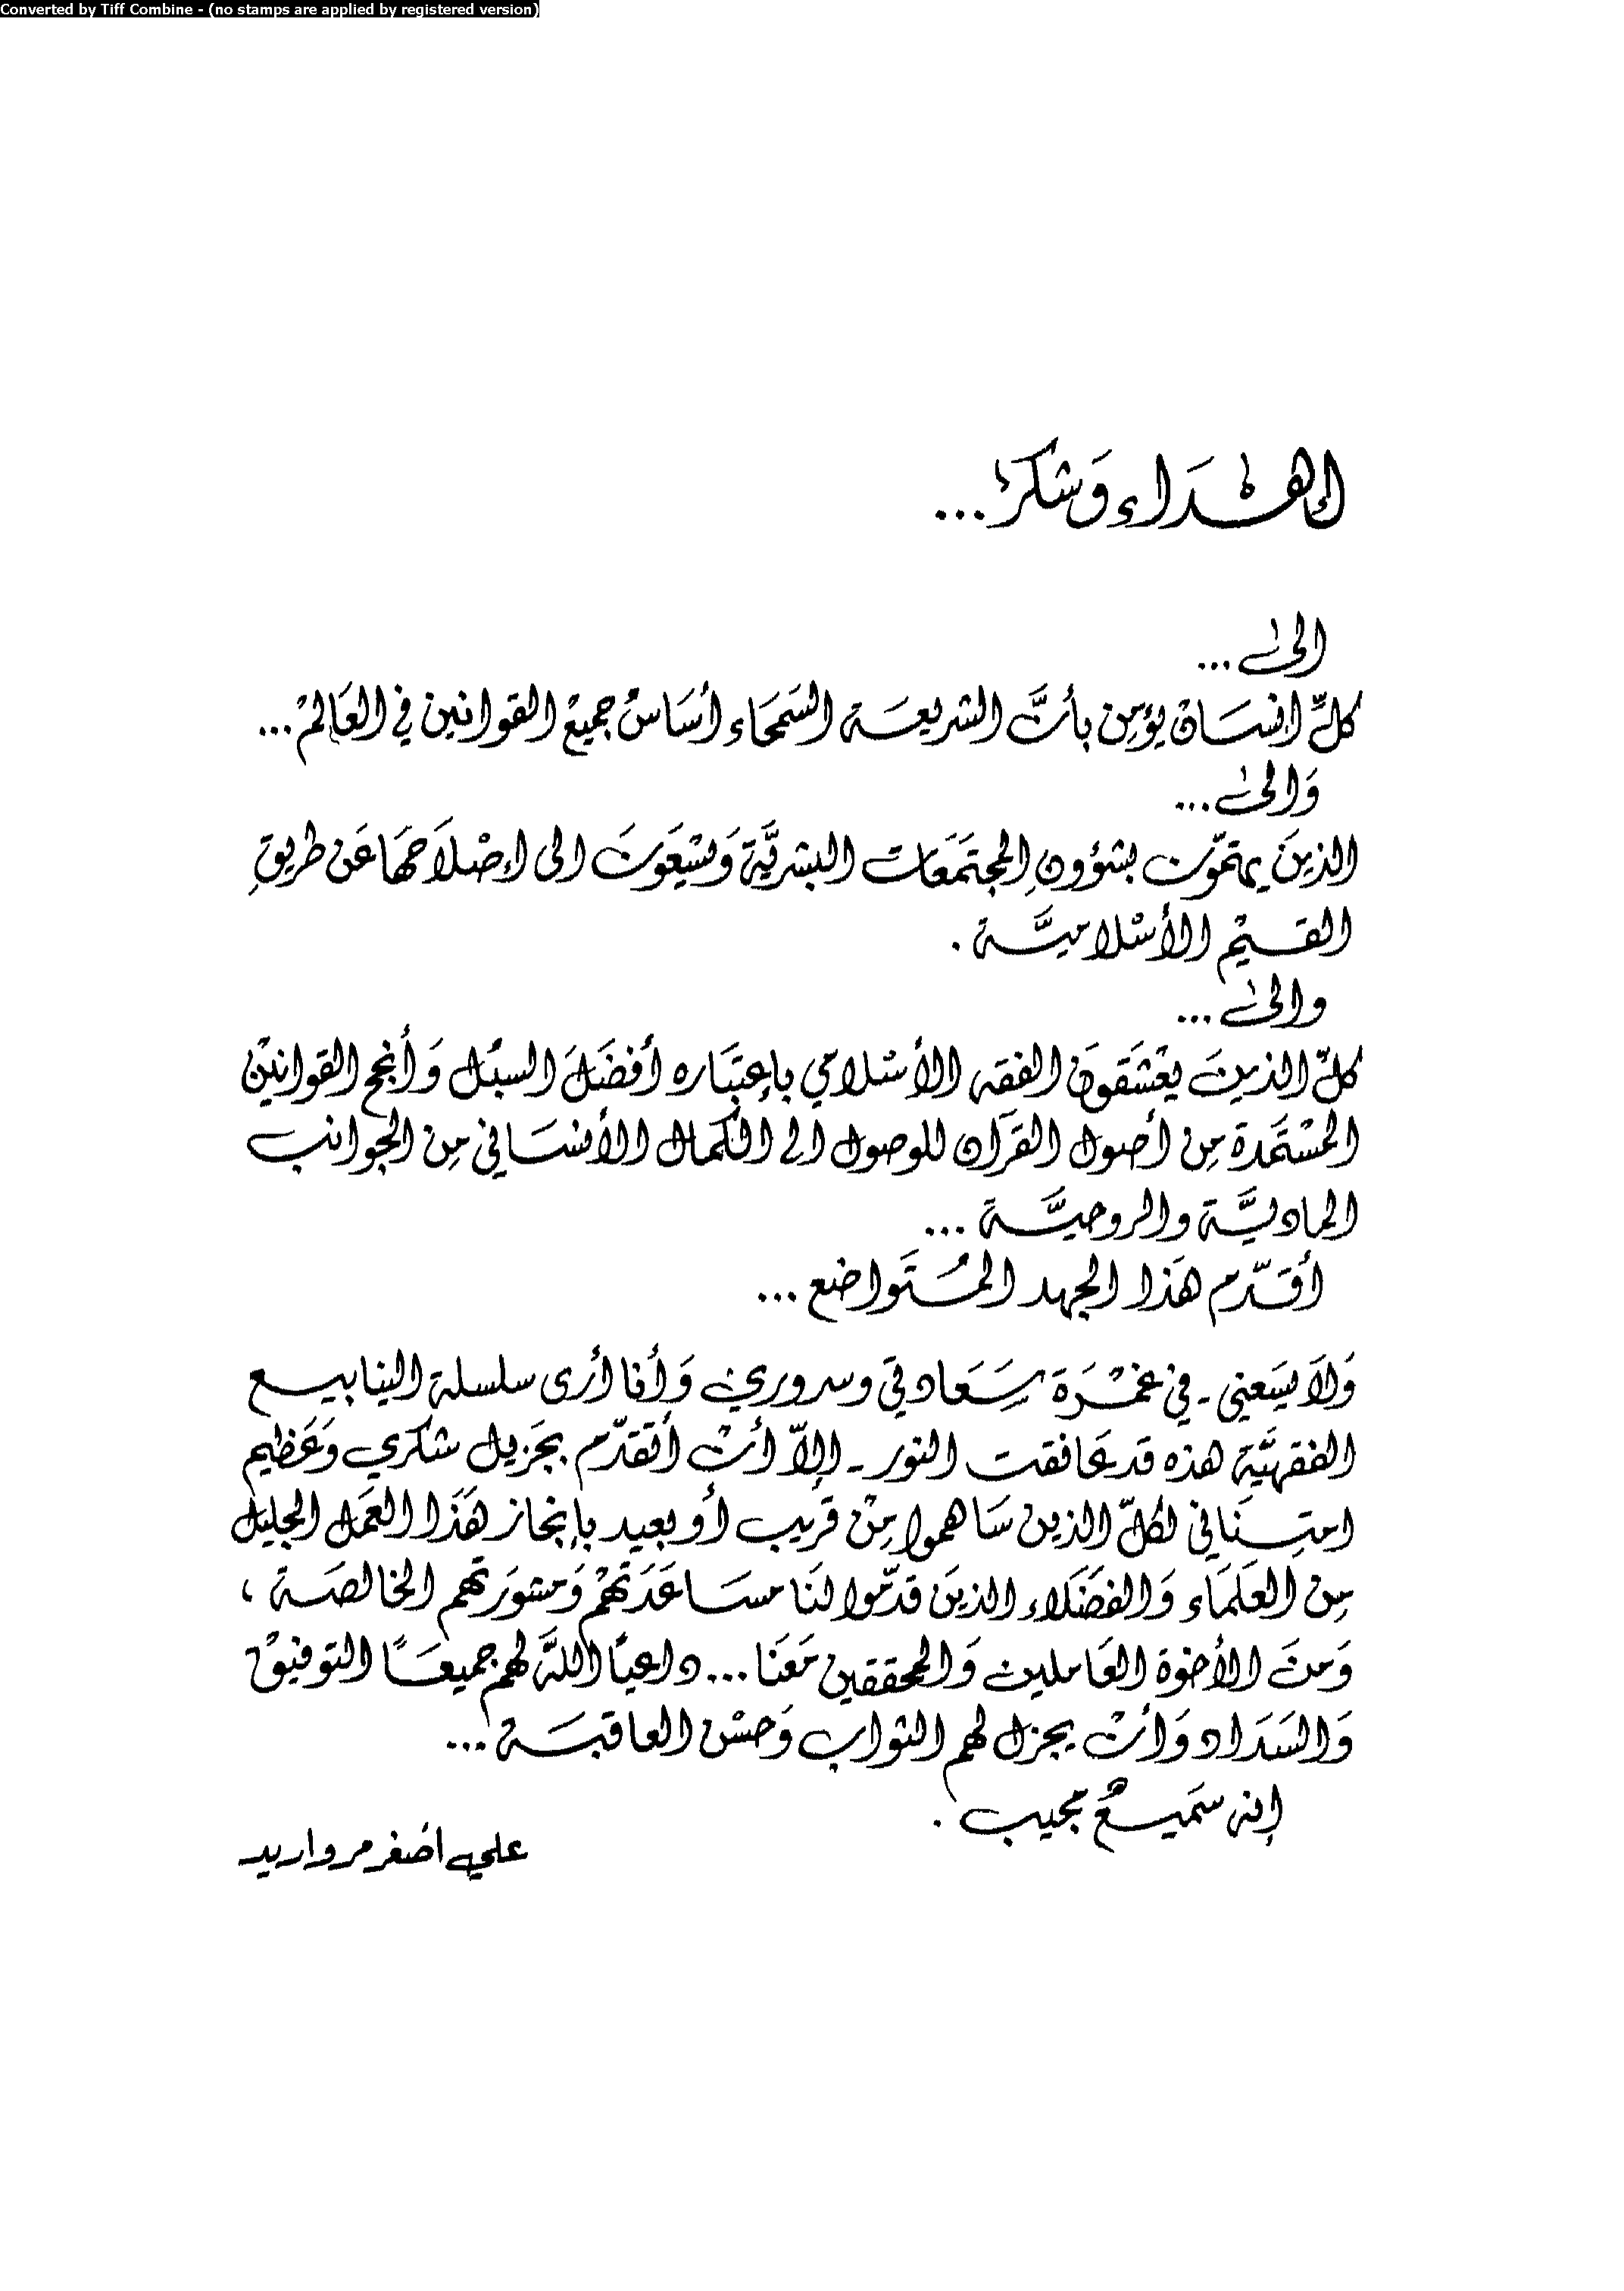 Converted by Tiff Combine - (no stamps are applied by registered version)
إهْدَاء وَشكرٌ...
الىٰ...
كلِّ انسَان يؤمِن بأنَّ الشريعَة السَمحَاء أسَاسُ جميع القوانين في العَالمْ...
وَالىٰ...
الذينَ يهتمّون بشؤونِ المجتمَعَات البشريَّة وَيسْعَونَ الى إصْلاَحهَا عَن طريقِ
القيَمْ الأسْلاميَّة .
والىٰ...
كلِّ الذينَ يعْشَقونَ الفقه الأسْلامي بإعتبَاره أفضَلَ السبُل وَأنجح القوانيْن
المسْتَمَدة مِن أصول القرآن للوصول الى الكمال الأنسَاني مِن الجوانب
الماديَّة والروحيَّة ...
أقدّم هَذا الجهد المُتَواضع ...
وَلاَ يسَعني - في غمْرَة سَعَادتي وسروري وَأنا أرى سلسلة الينابيع
الفقهيَّة هذه قد عَانقت النور - إلاّ أنْ أتقدّم بجَزيل شكري وَعَظيم
امتِنَاني لكلّ الذين سَاهموا مِنْ قريب أو بعيد بإنجاز هَذَا العَمَل الجليل
مِن العلمَاء وَالفضَلاء الذينَ قدّموا لنَا مسَاعَدَتهُمْ وَمشورَتهم الخالصَة ،
وَمنَ الأخوة العَاملين وَالمحققين مَعَنَا... داعياً اللهَ لهم جميعَاً التوفيقْ
وَالسَدَاد وَأنْ يجزل لهم الثواب وَحسْن العاقبَة ...
إنه سَميعٌ مجيب .
علي اصَغر مرواريد